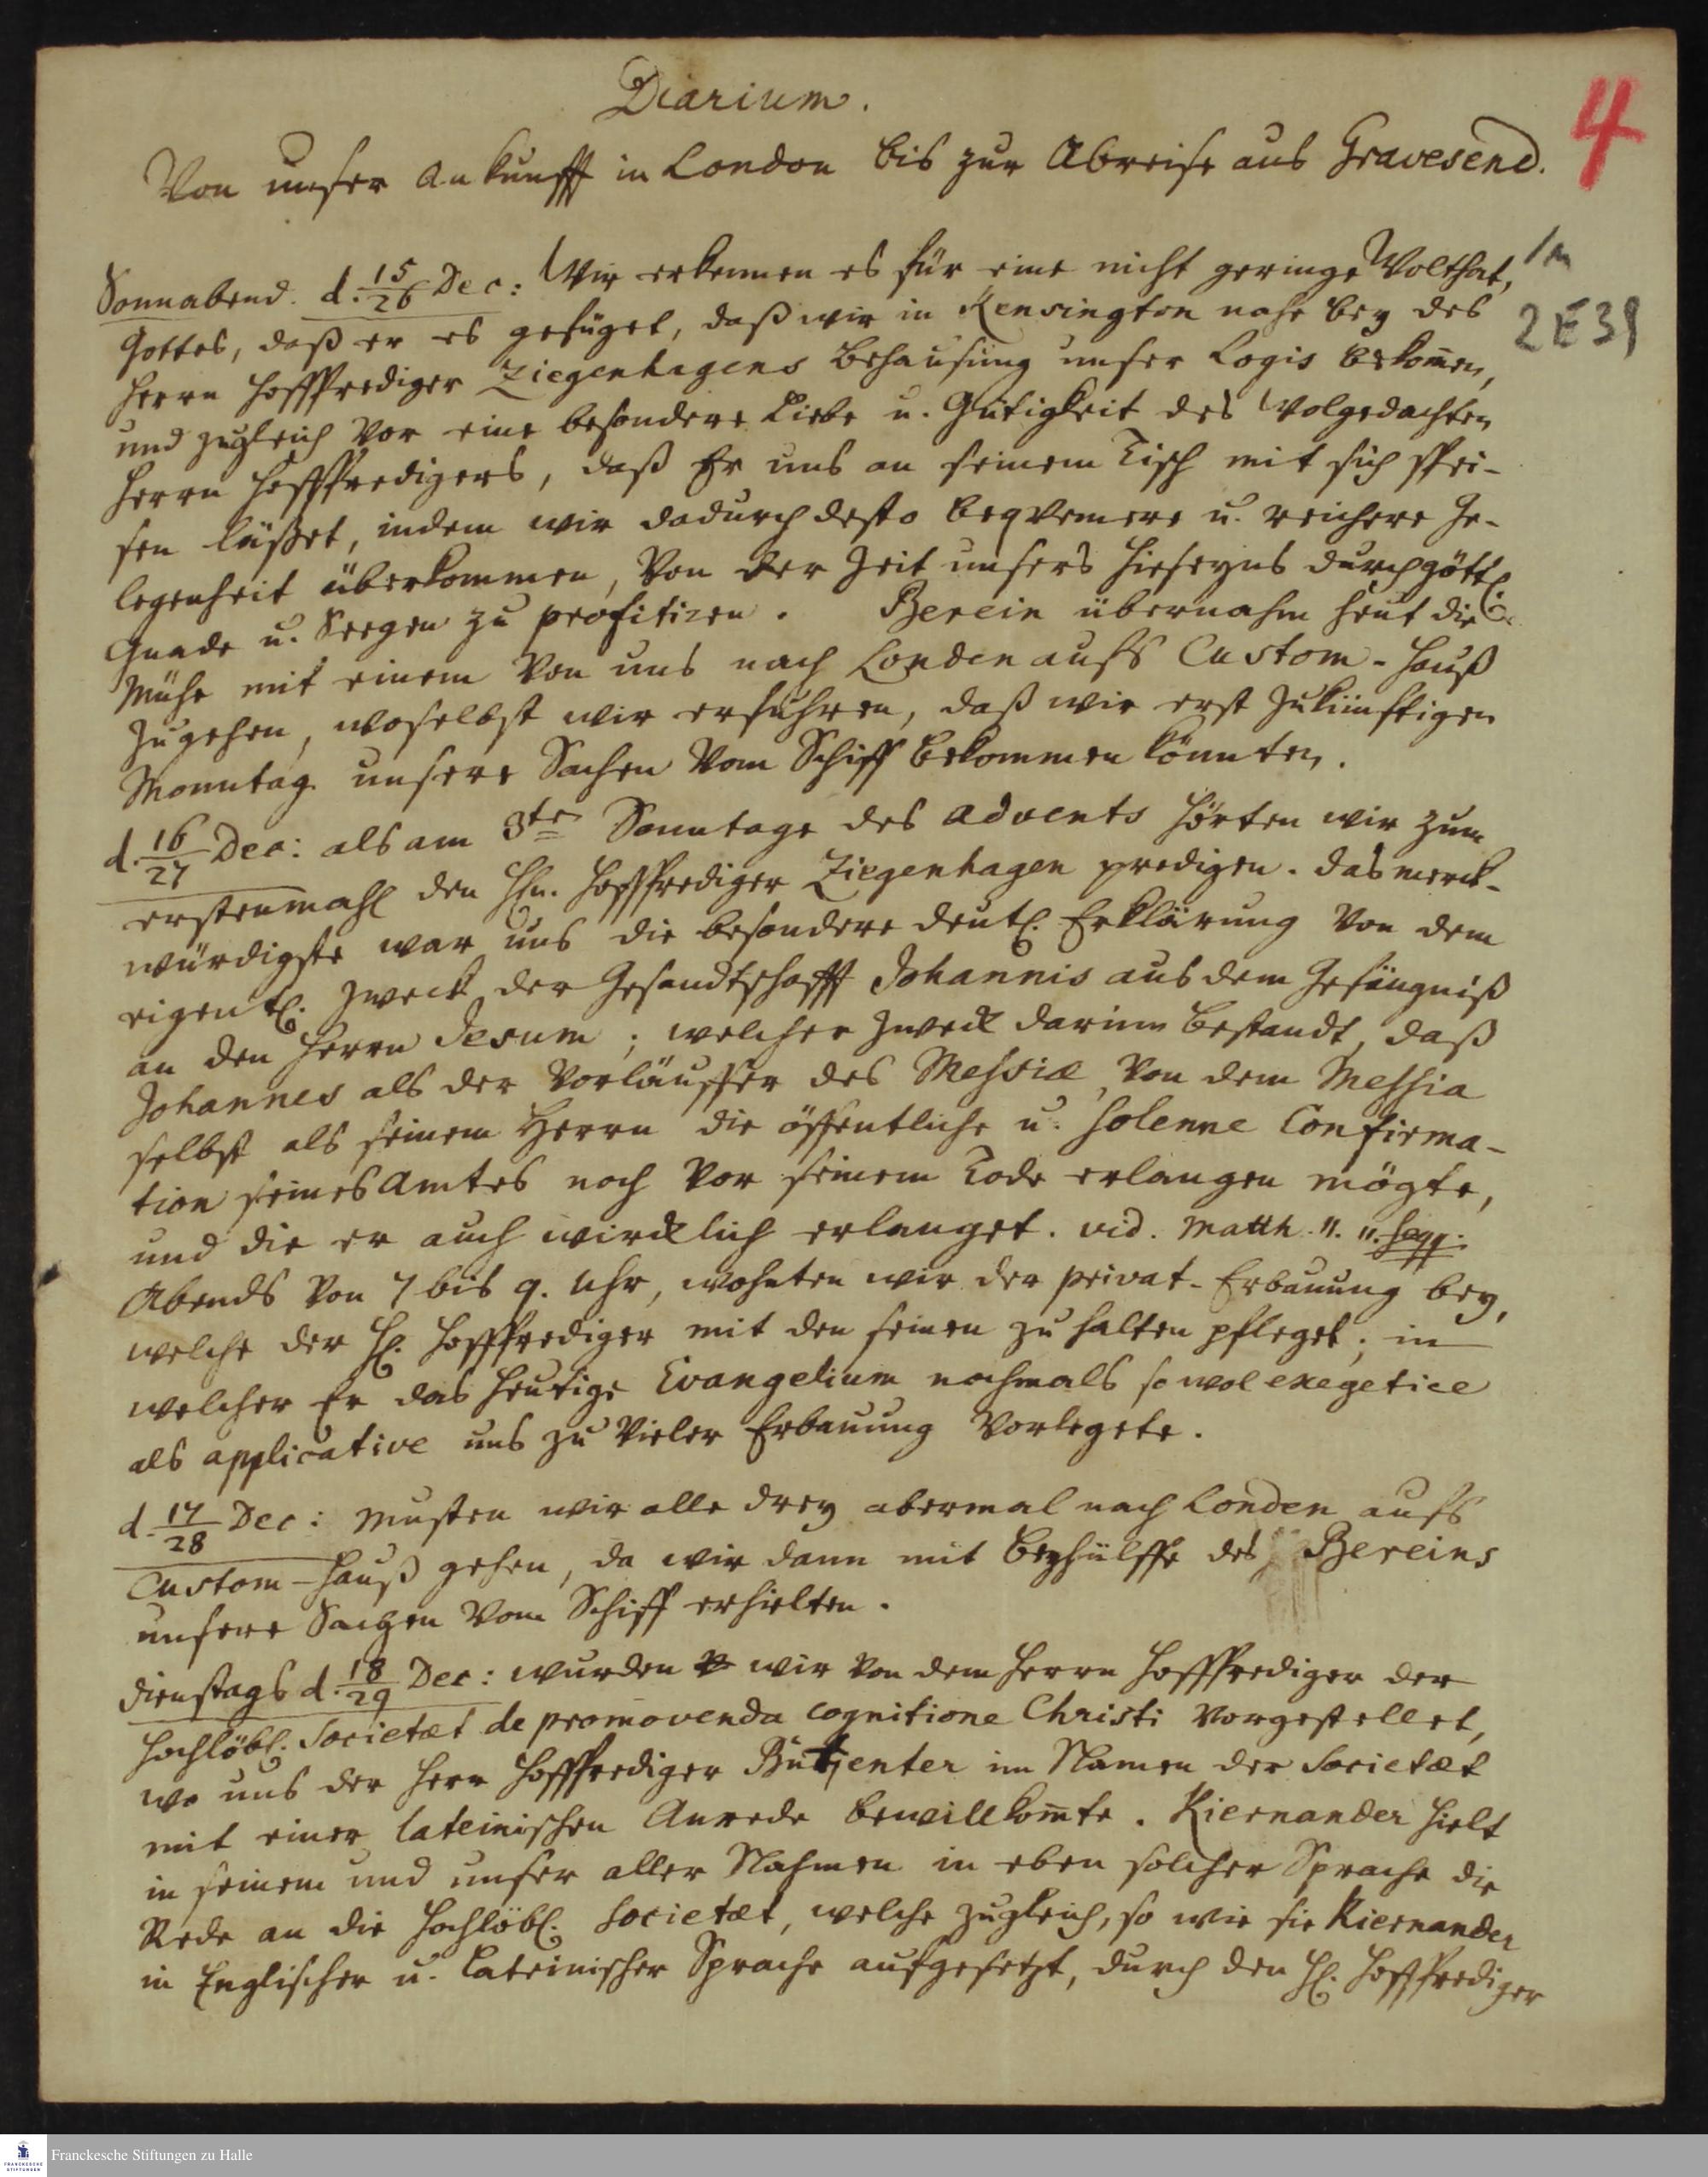 Diarium.
4
Von unser Ankunfft in London bis zur Abreise aus Gravesend.
1m
2E39
Sonnabend. d. 15/26 Dec: Wir erkennen es für eine nicht geringe Wolthat,
Gottes, daß er es gefüget, daß wir in Kensington nahe bey des
Herrn Hoffprediger Ziegenhagens Behausung unser Logis bekom̄en,
und zugleich vor eine besondere Liebe u. Gütigkeit des Wolgedachten
Herrn Hoffpredigers, daß Er uns an seinem Tisch mit sich spei-
sen läßet, indem wir dadurch desto beqvemere u. reichere Ge-
legenheit überkommen, von der Zeit unsers Hierseyns durch göttl.
Gnade u. Seegen zu profitiren. Berein übernahm heut die
Mühe mit einem von uns nach London aufs Custom-Hauß
zugehen, woselbst wir erfuhren, daß wir erst zukünfftigen
Monntag unsere Sachen vom Schiff bekommen könnten.
d. 16/27 Dec: als am 3ten Sonntage des Advents hörten wir zum
erstenmahl den Hln. Hoffprediger Ziegenhagen predigen. das merck-
würdigste war uns die besondere deutl. Erklärung von dem
eigentl. Zweck der Gesandtschafft Johannis aus dem Gefängniß
an den Herrn Jesum; welcher Zweck darinn bestandt, daß
Johannes als der Vorläuffer des Messiæ, von dem Messia
selbst als seinem Herrn die öffentliche u. solenne Confirma-
tion seines Amtes noch vor seinem Tode erlangen mögte,
und die er auch wircklich erlanget. vid. Matth. 11. 11. seqq.
Abends von 7 bis 9. Uhr, wohnten wir der privat-Erbauung bey,
welche der Hl. Hoffprediger mit den seinen zu halten pfleget; in
welcher Er das heutige Evangelium nochmals so wol exegetice
als applicative uns zu vieler Erbauung vorlegete.
d. 17/28 Dec: Musten wir alle drey abermal nach London aufs
Custom-Hauß gehen, da wir dann mit Beyhülffe des Bereins
unsere Sachen vom Schiff erhielten.
Dienstags d. 18/29 Dec: wurden wir von dem Herrn Hoffprediger der
Hochlöbl. Societæt de promovenda cognitione Christi vorgestellet,
wo uns der Herr Hoffprediger Butjenter im Namen der Societæt
mit einer lateinischen Anrede bewillkom̄te. Kiernander hielt
in seinem und unser aller Nahmen in eben solcher Sprache die
Rede an die Hochlöbl. Societæt, welche zugleich, so wie sie Kiernander
in Englischer u. Lateinischer Sprache aufgesetzt, durch den Hl. Hoffprediger
FRANCKESCHE STIFTUNGEN
Franckesche Stiftungen zu Halle